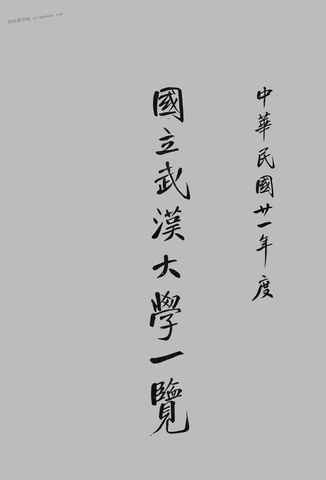 中華民國廿一年度
國立武漢大學一覽